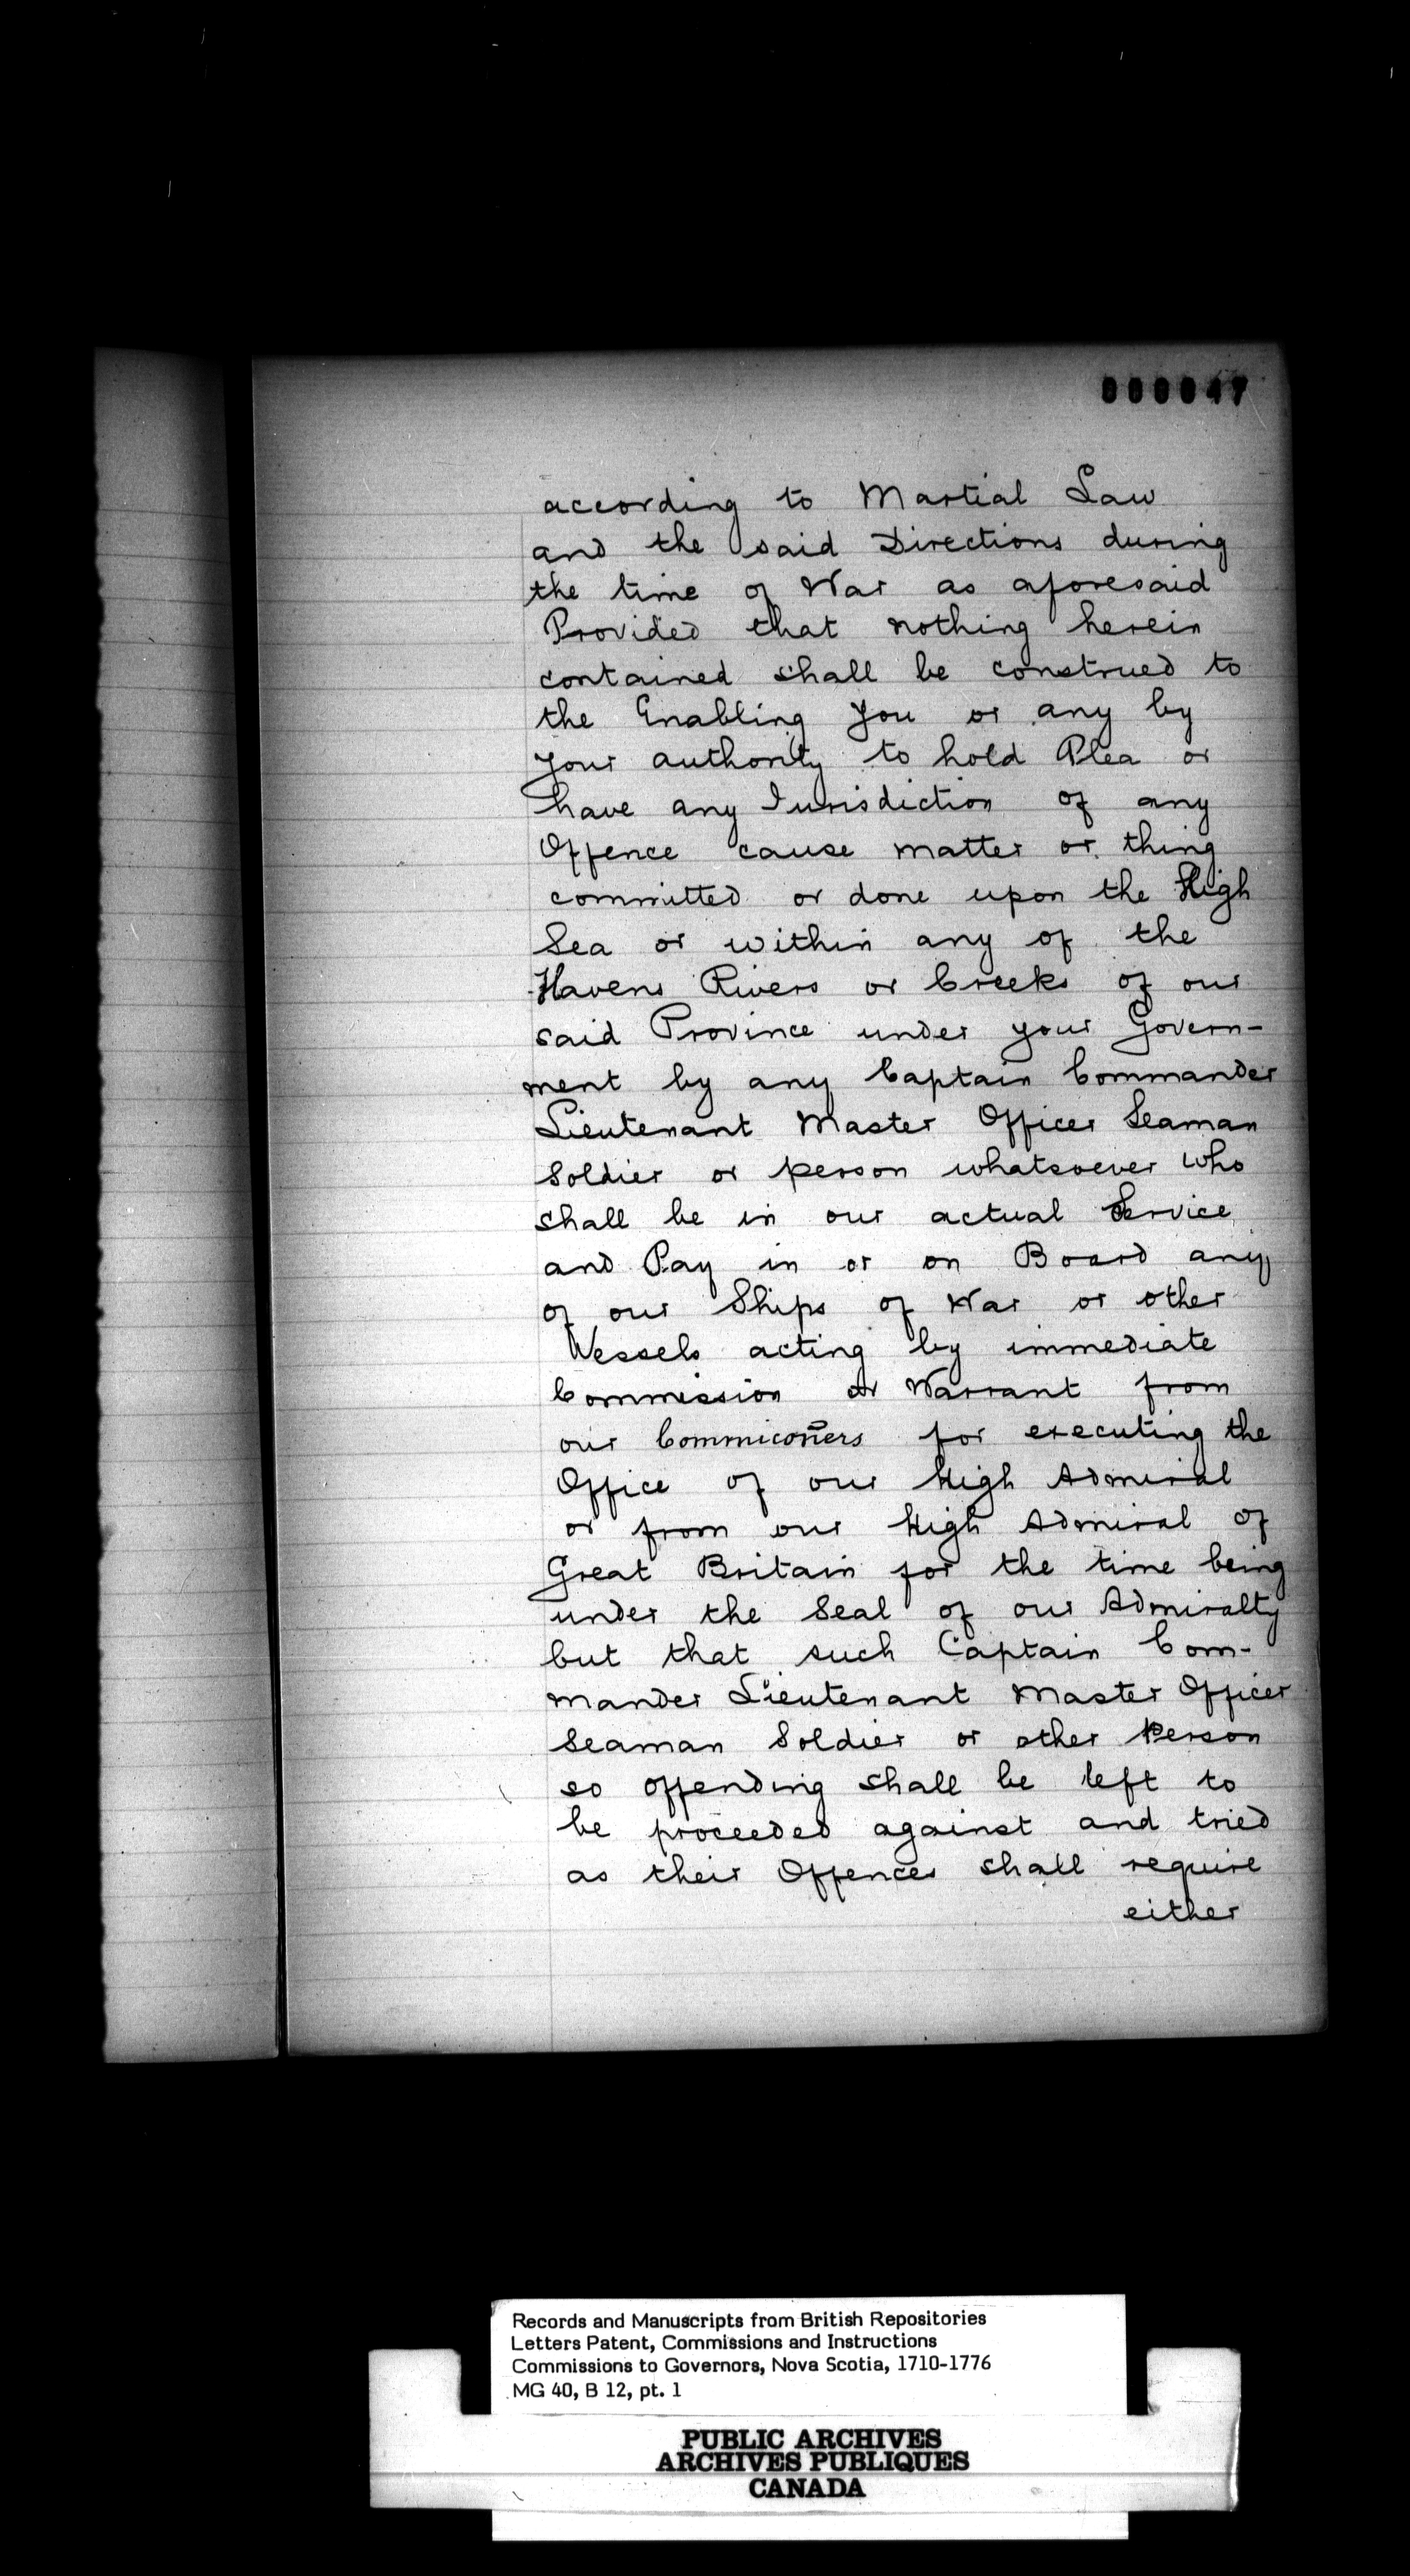 000047
according to Martial Law
and the said Directions during
the time of War as aforesaid
Provided that nothing herein
contained shall be construed to
the Enabling you or any by
your authority to hold Plea or
have any Jurisdiction of any
Offence cause matter or thing
committed or done upon the High
Sea or within any of the
Havens Rivers or Creeks of our
said Province under your Govern-
ment by any Captain Commander
Lieutenant Master Officer Seaman
Soldier or person whatsoever who
shall be in our actual Service
and Pay in or on Board any
of our Ships of War or other
Vessels acting by immediate
Commission or Warrant from
our Commicoñers for executing the
Office of our High Admiral
or from our High Admiral of
Great Britain for the time being
under the Seal of our Admiralty
but that such Captain Com-
mander Lieutenant Master Officer
Seaman Soldier or other Person
so offending shall be left to
be proceeded against and tried
as their Offences shall require
either
Records and Manuscripts from British Repositories
Letters Patent, Commissions and Instructions
Commissions to Governors, Nova Scotia, 1710-1776
MG 40, B 12, pt. 1
PUBLIC ARCHIVES
ARCHIVES PUBLIQUES
CANADA